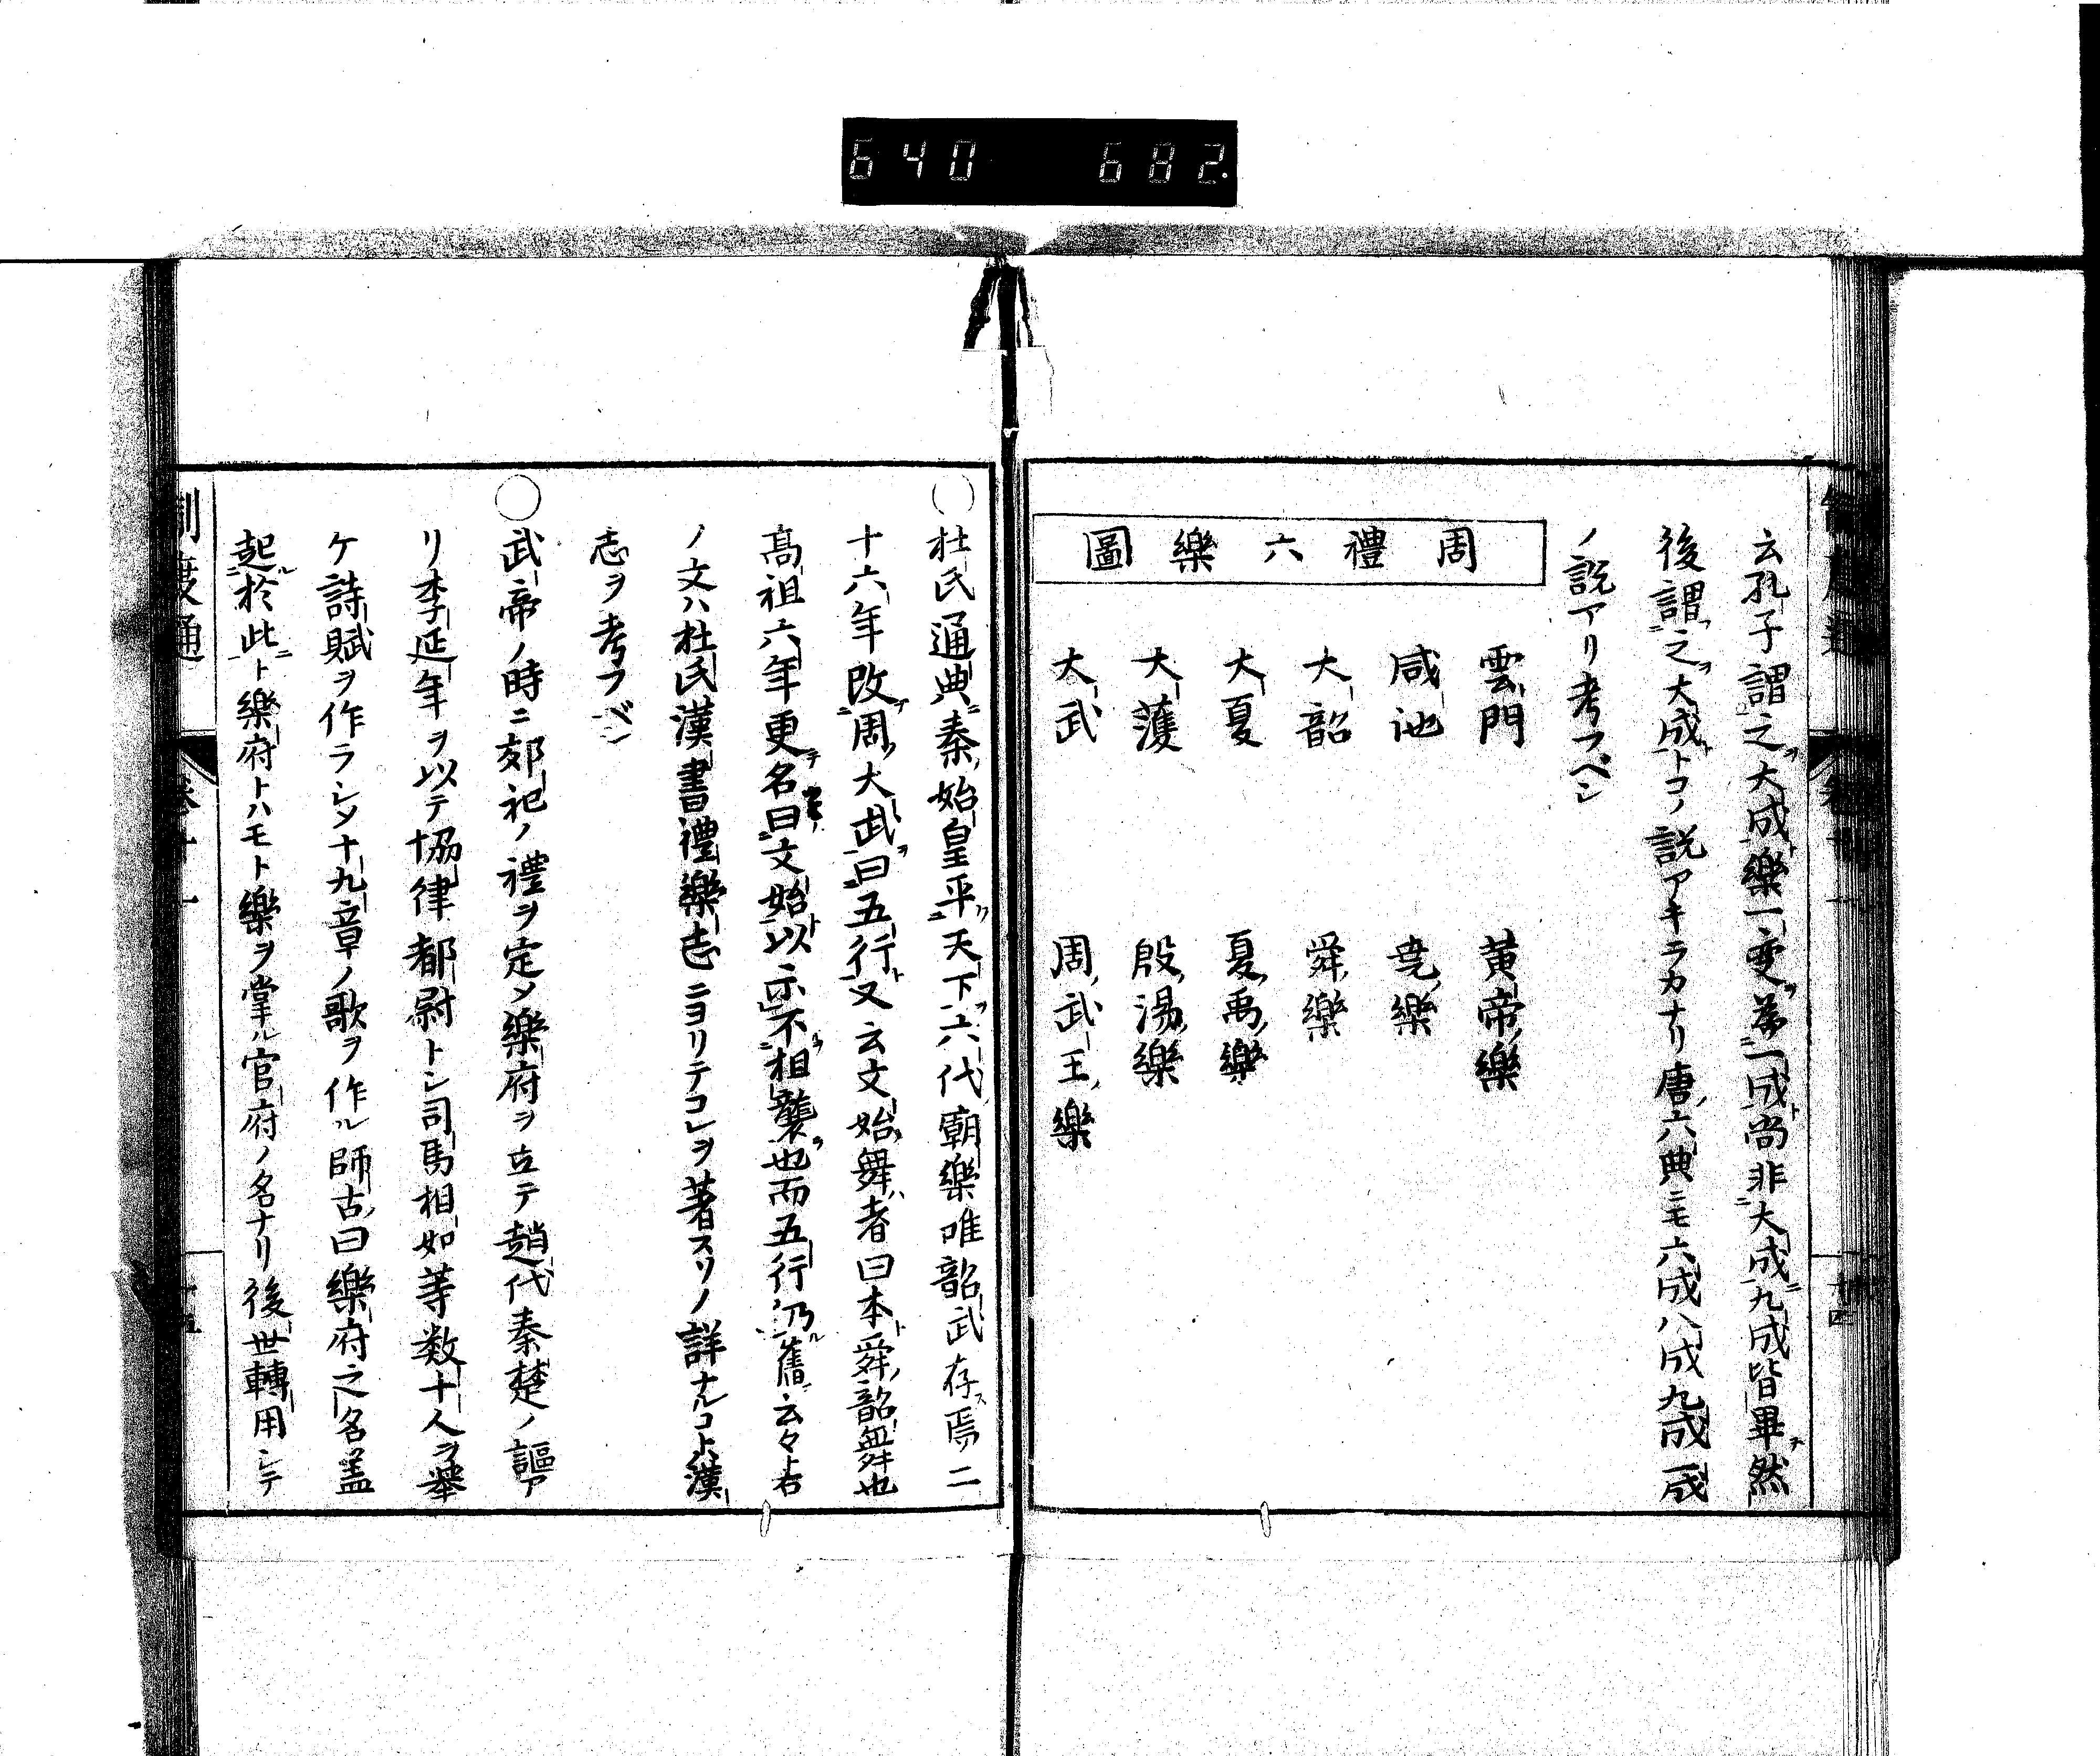 640 682.
云孔子謂之大成樂一變為一成尚非大成九成皆畢然
後謂之大成トコノ說アキラカナリ唐六典ニモ六成八成九成一成
ノ說アリ考フベシ
周禮六樂圖
雲門 黃帝樂
咸池 堯樂
大韶 舜樂
大夏 夏禹樂
大濩 殷湯樂
大武 周武王樂
○杜氏通典秦始皇平天下六代廟樂唯韶武存焉二
十六年改周大武曰五行又云文始舞者曰本舜韶舞也
高祖六年更名曰文始以示不相襲也而五行乃舊云々ト右
ノ文ハ杜氏漢書禮樂志ニヨリテコレヲ著スソノ詳ナルコト漢
志ヲ考フベシ
○武帝ノ時ニ郊祀ノ禮ヲ定メ樂府ヲ立テ趙代秦楚ノ謳ア
リ李延年ヲ以テ協律都尉トシ司馬相如等数十人ヲ舉
ケ詩賦ヲ作ラシメ十九章ノ歌ヲ作ル師古曰樂府之名蓋
起於此ト樂府トハモト樂ヲ掌ル官府ノ名ナリ後世轉用シテ
制度通 卷十一